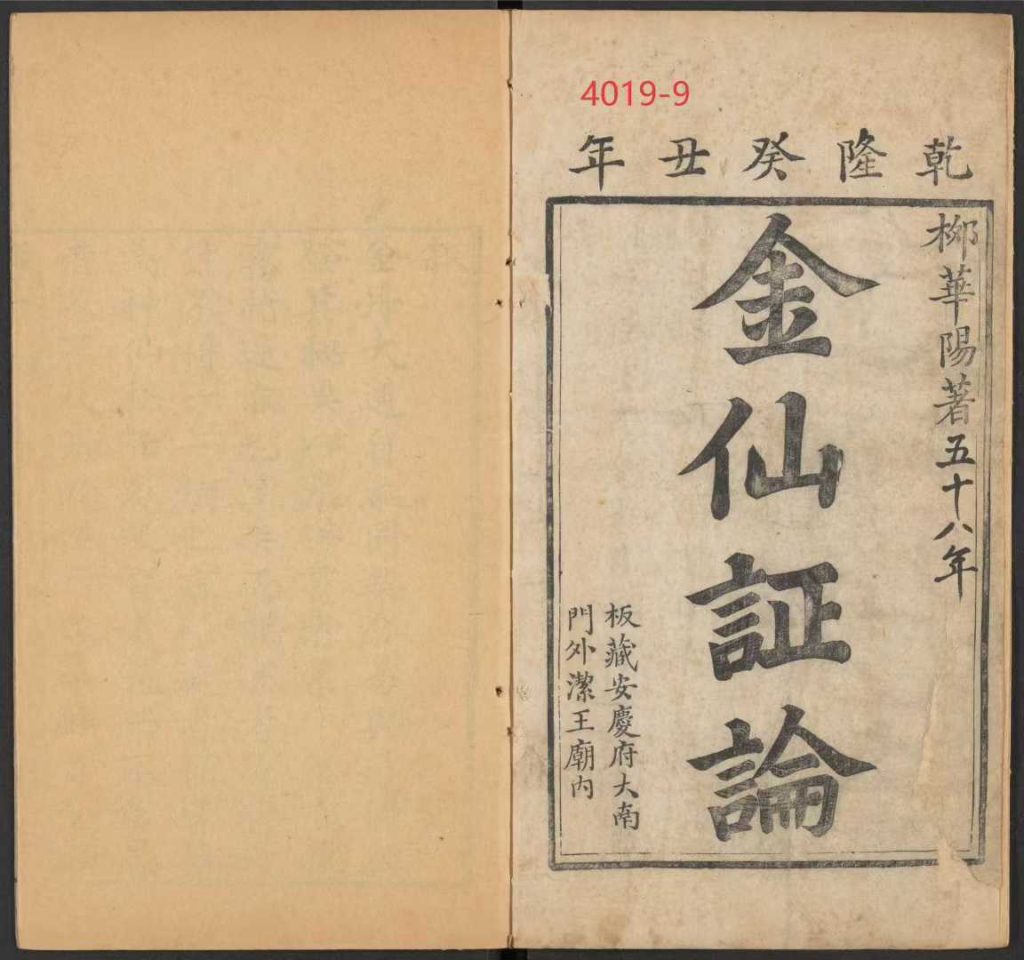 4019-9
乾隆癸丑年
柳華陽著五十八年
金仙証論
板藏安慶府大南
門外潔王廟内